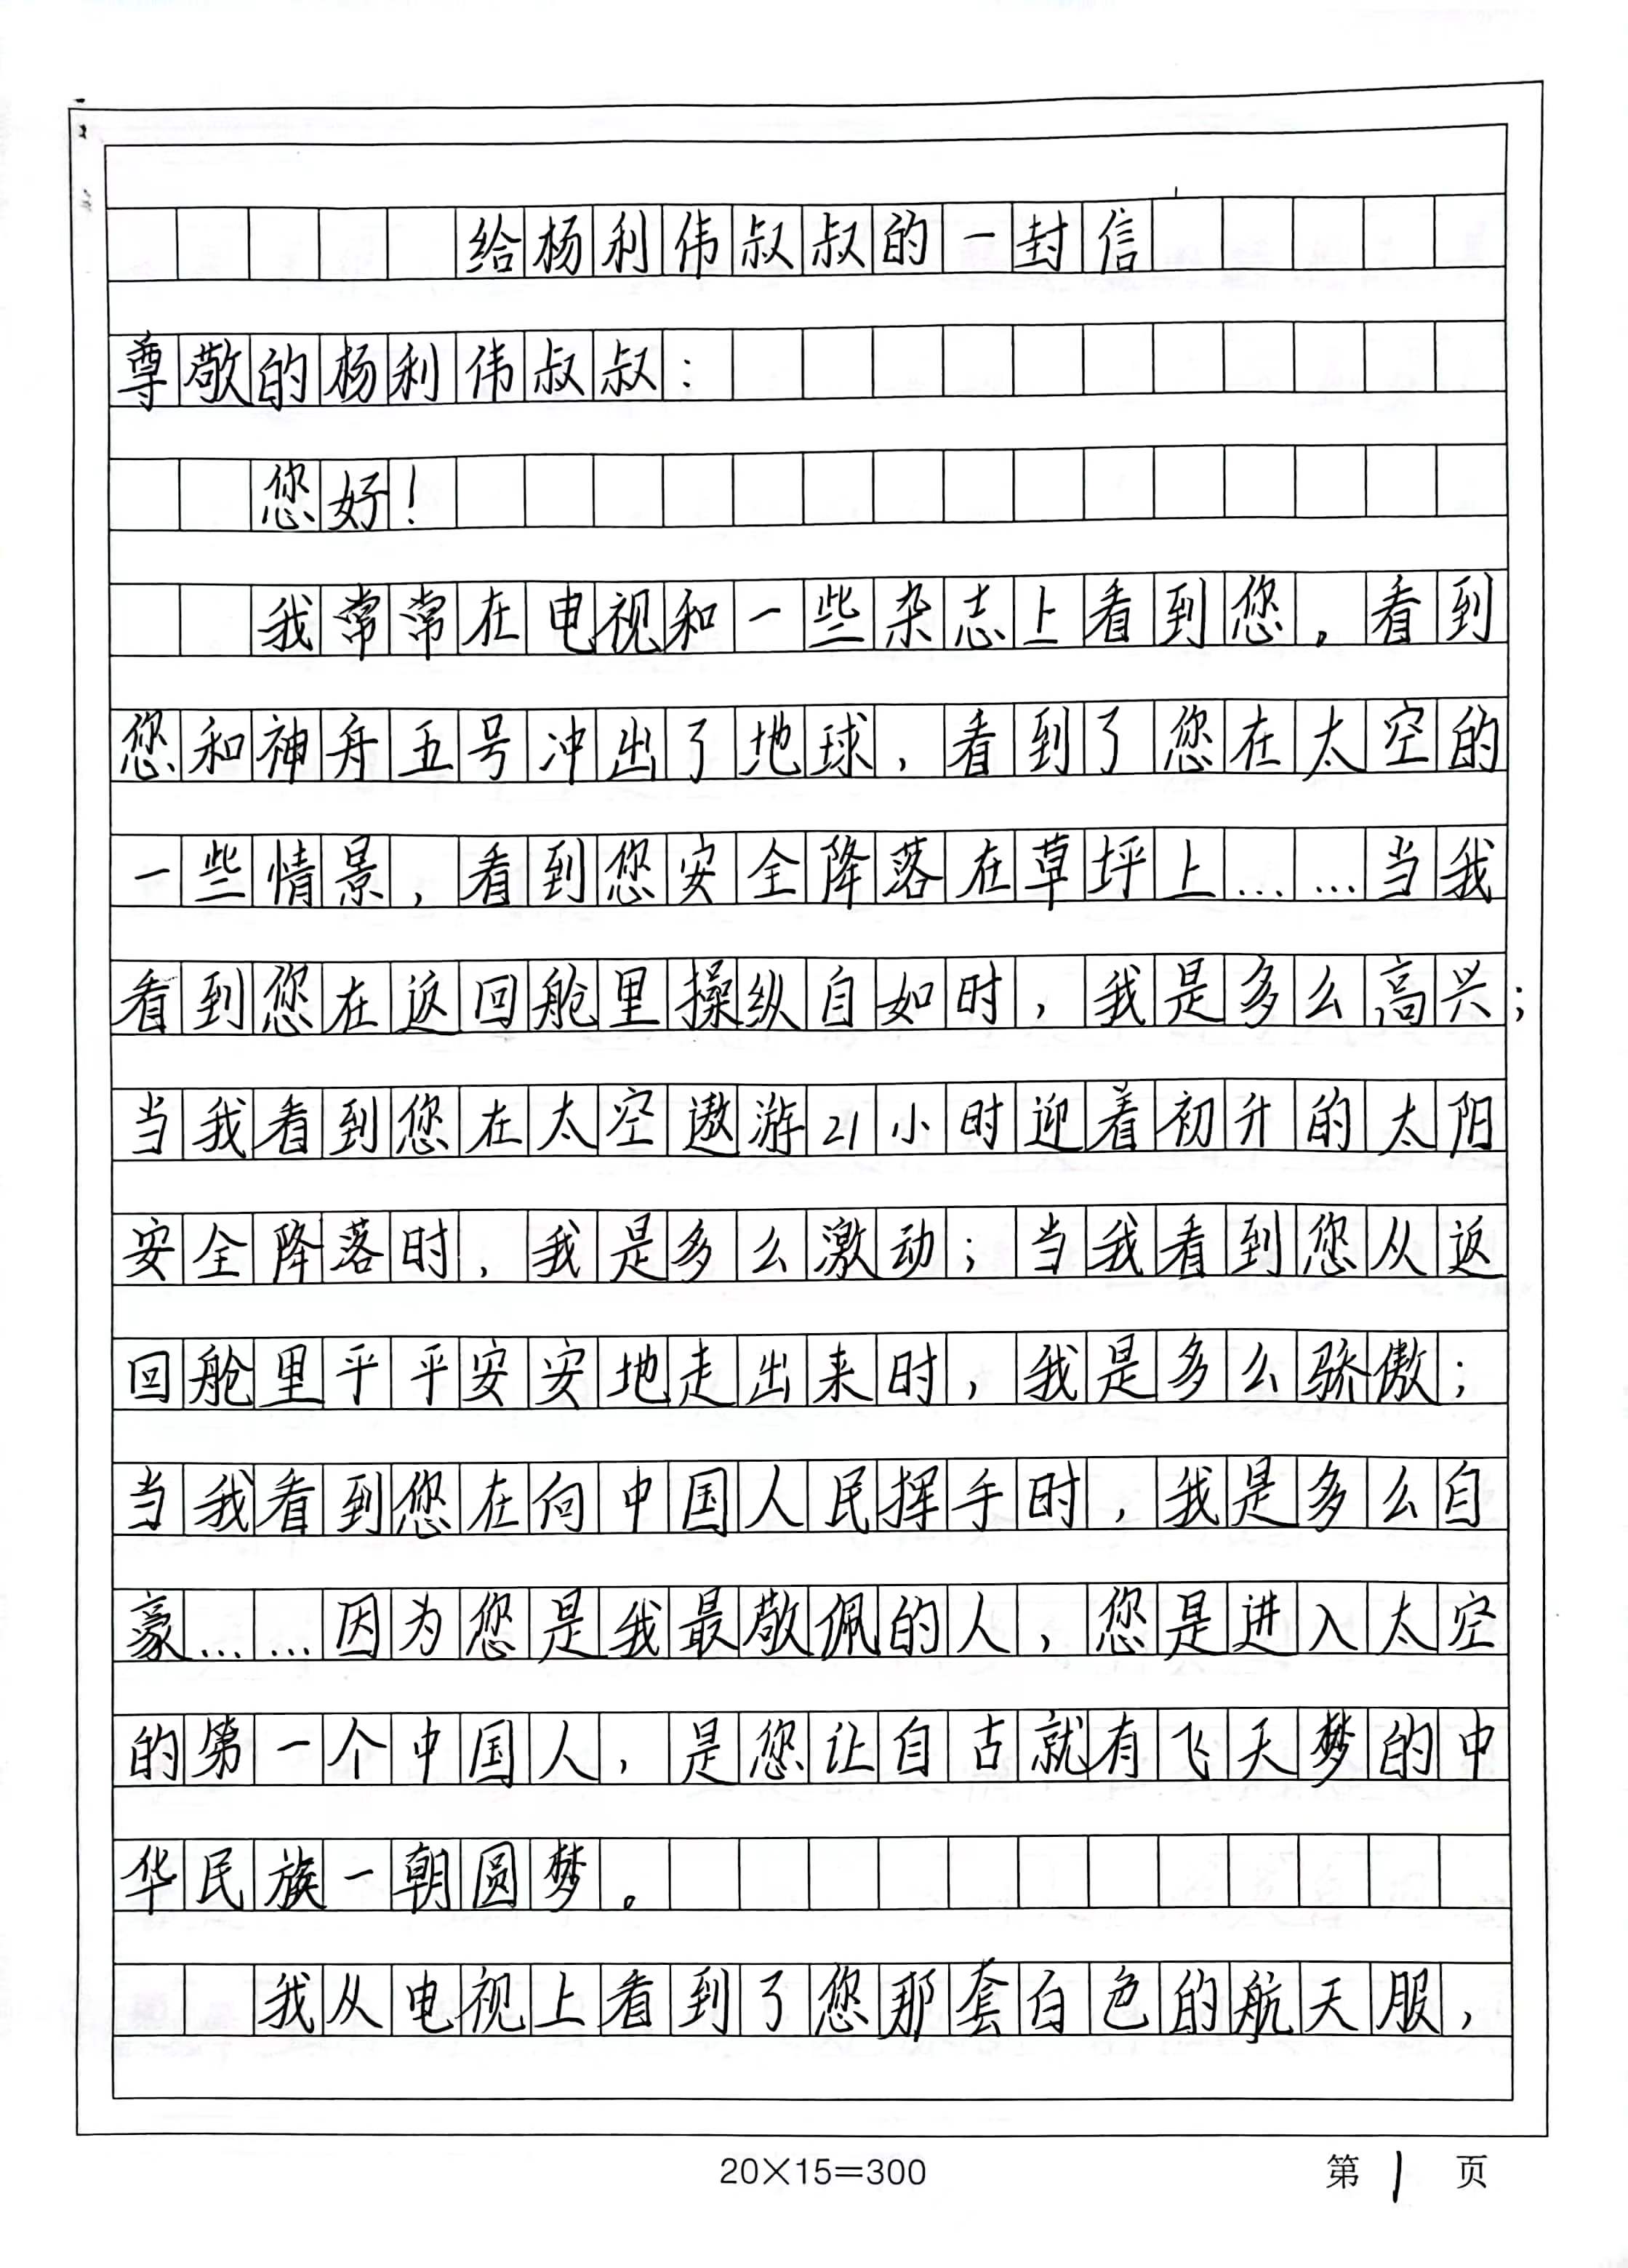 给杨利伟叔叔的一封信
尊敬的杨利伟叔叔：
您好！
我常常在电视和一些杂志上看到您。看到
您和神舟五号冲出了地球，看到了您在太空的
一些情景，看到您安全降落在草坪上……当我
看到您在返回舱里操纵自如时，我是多么高兴；
当我看到您在太空遨游21小时迎着初升的太阳
安全降落时，我是多么激动；当我看到您从返
回舱里平平安安地走出来时，我是多么骄傲；
当我看到您在向中国人民挥手时，我是多么自
豪……因为您是我最敬佩的人，您是进入太空
的第一个中国人，是您让自古就有飞天梦的中
华民族一朝圆梦。
我从电视上看到了您那套白色的航天服，
20×15=300
第1页